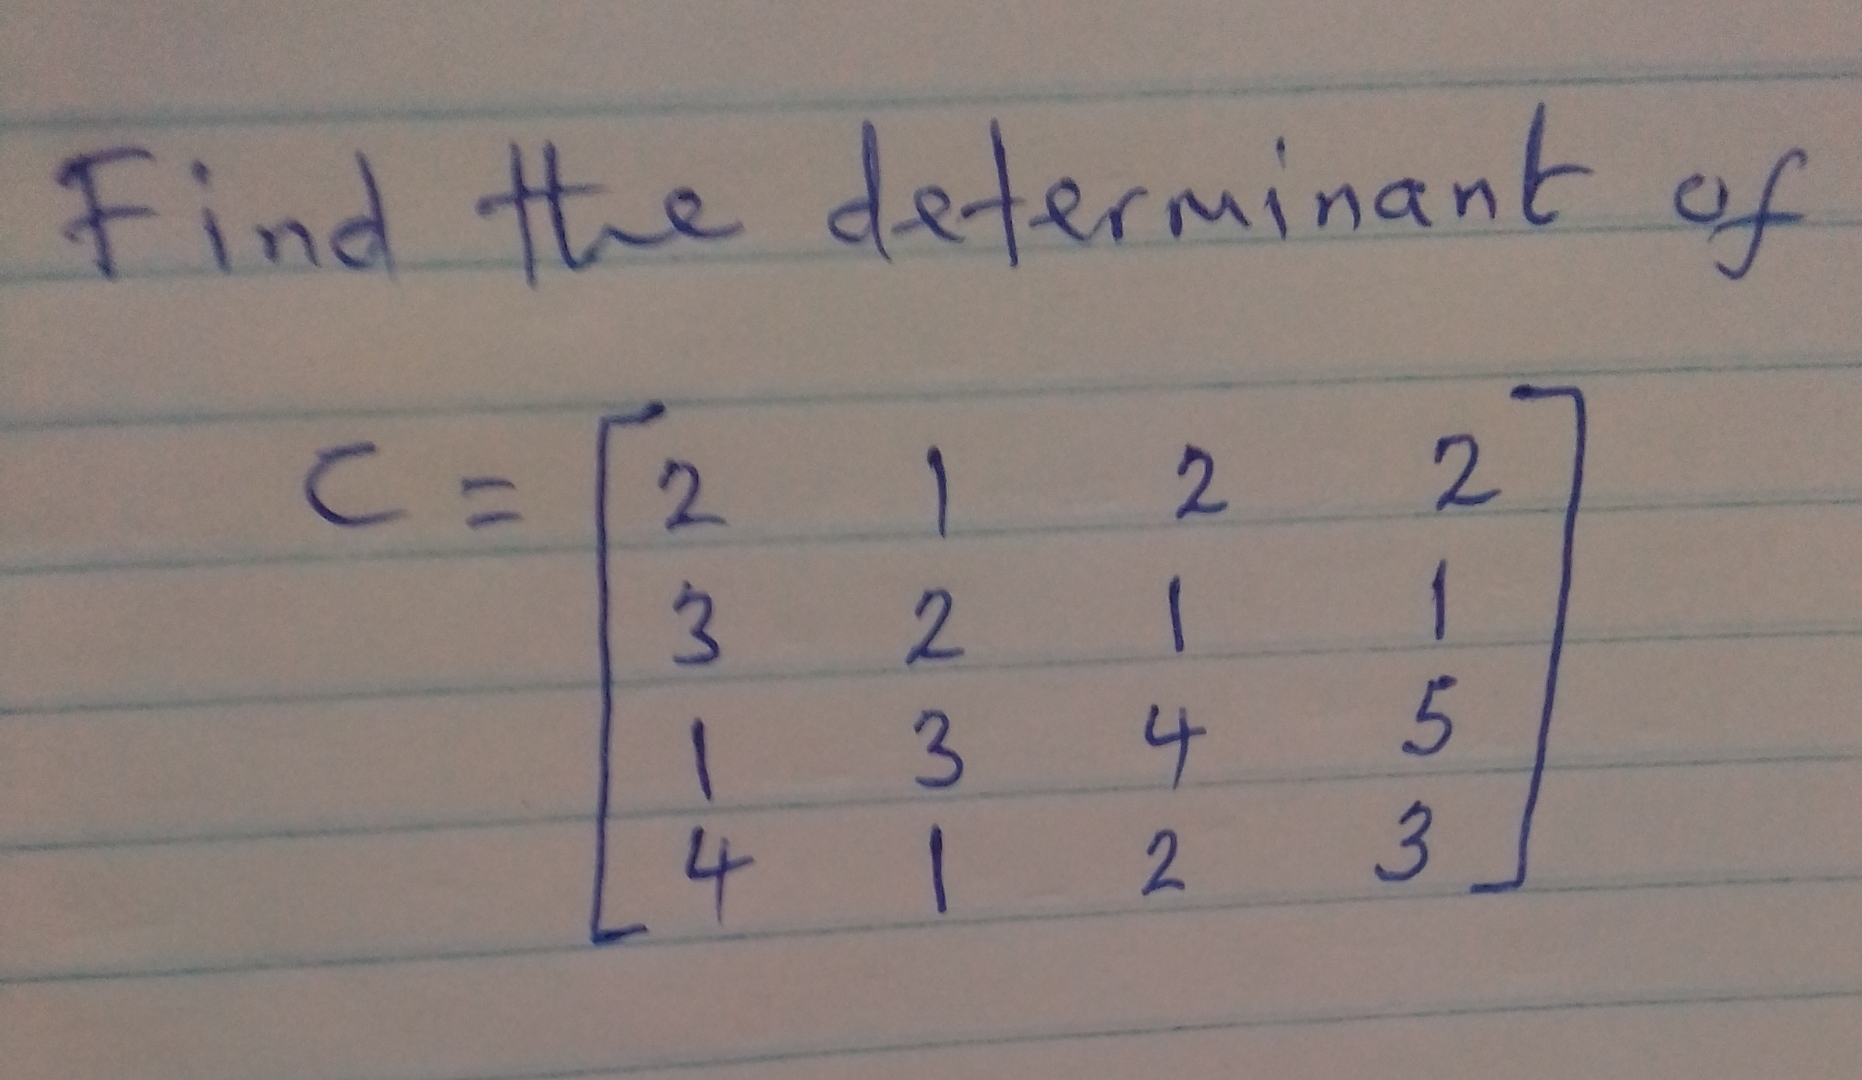 Find the determinant of
C = [2 1 2 2
3 2 1 1
1 3 4 5
4 1 2 3]